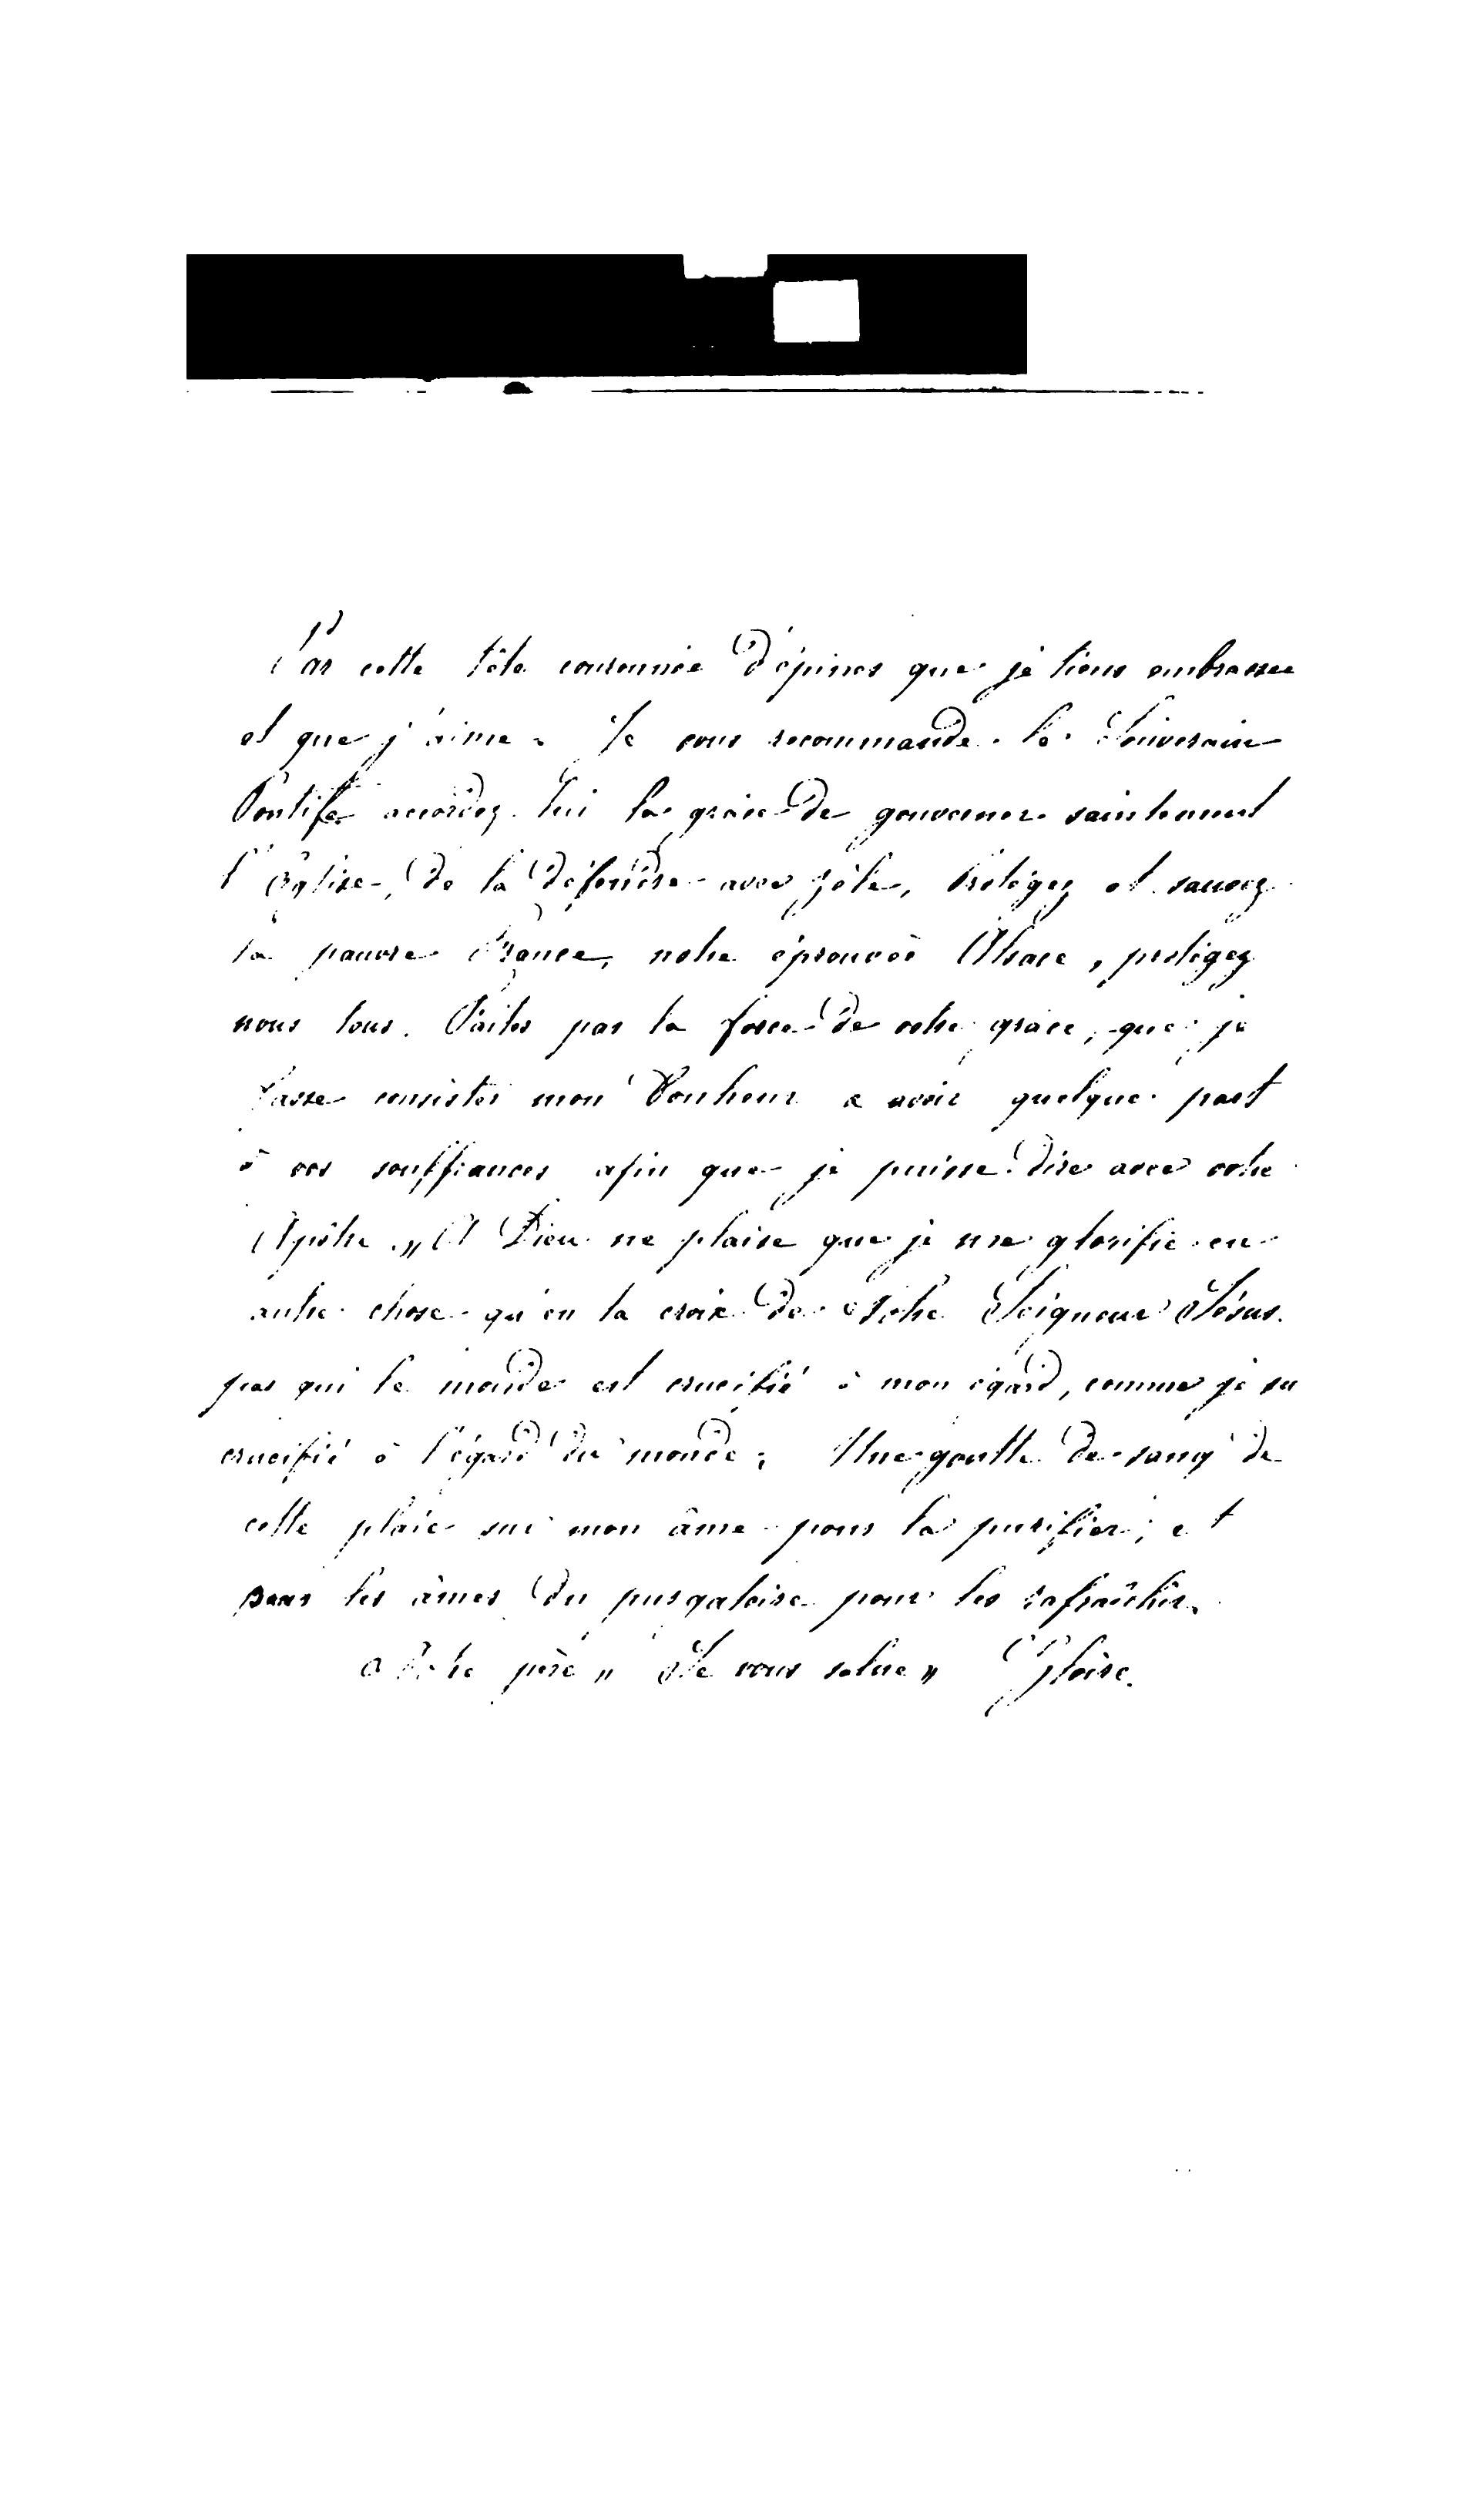 Par cette tête couronnée d'épines que je tiens embrassée
et que j'aime. Je vous recommande le Souverain
Pontife accordez lui la grâce de gouverner saintement
l'Eglise, de la défendre avec zèle, Protégez et sauvez
la pauvre France, notre éprouvée Alsace, protégez
nous tous. Faites par la force de votre grâce, que je
fasse consister mon bonheur a avoir quelque part
à vos souffrances afin que je puisse dire avec votre
Apôtre „ A Dieu ne plaise que je me glorifie en
autre chose qu'en la croix de Notre Seigneur Jésus.
par qui le monde est crucifié à mon égard, comme je su
crucifié à l'égard du monde; Une goutte de sang de
cette plaie sur mon âme pour la purifier; et
pour les âmes du purgatoire pour les rafraîchir.
a Notre père „ Je vous salue „ Gloire.